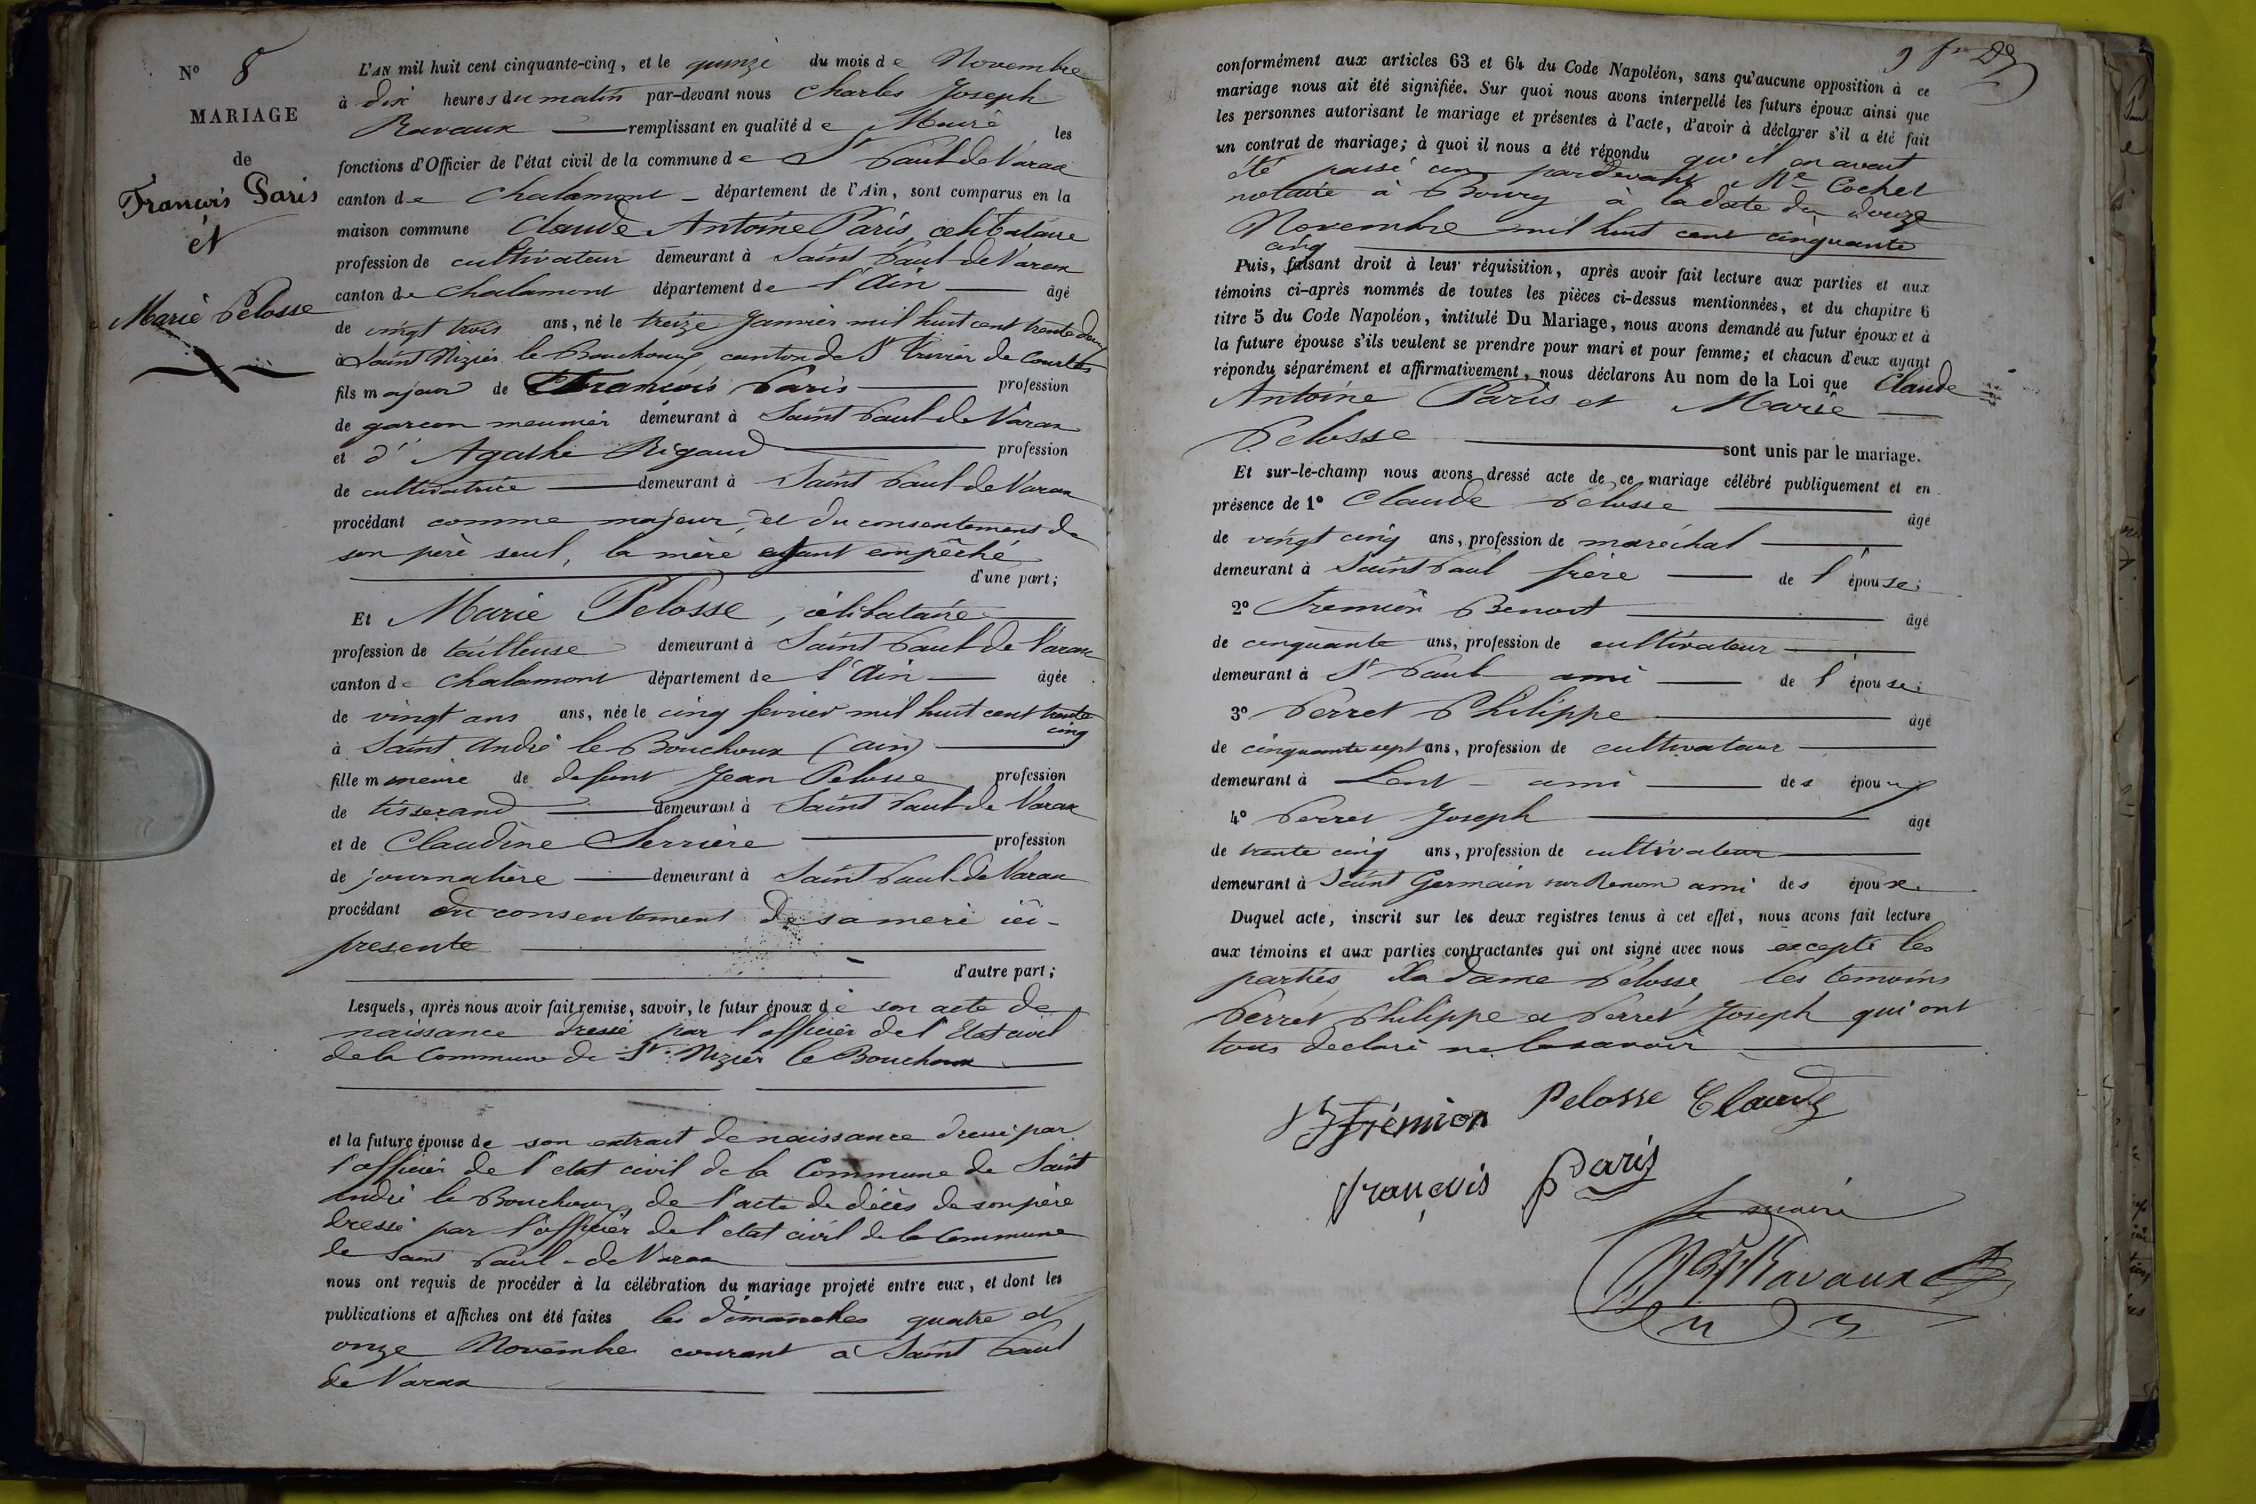 N° 8
MARIAGE
de
Francois Paris
et
Marie Pelosse
L'AN mil huit cent cinquante-cinq, et le quinze du mois de Novembre
à dix heures du matin par-devant nous Charles Joseph
Ravaux remplissant en qualité de Maire les
fonctions d'Officier de l'état civil de la commune de St Paul de Varax
canton de Chalamont département de l'Ain, sont comparus en la
maison commune Claude Antoine Paris célibataire
profession de cultivateur demeurant à Saint Paul de Varax
canton de Chalamont département de l'Ain âgé
de vingt trois ans, né le treize Janvier mil huit cent trente deux
à Saint Nizier le Bouchoux canton de St Trivier de Courtes
fils majeur de François Paris profession
de garcon meunier demeurant à Saint Paul de Varax
et d' Agathe Rigaud profession
de cultivatrice demeurant à Saint Paul de Varax
procédant comme majeur, et du consentement de
son père seul, la mère étant empêché
d'une part;
Et Marie Pelosse, célibataire
profession de tailleuse demeurant à Saint Paul de Varax
canton de Chalamont département de l'Ain âgée
de vingt ans ans, née le cinq fevrier mil huit cent trente
cinq
à Saint André le Bouchoux (Ain)
fille mineure de defunt Jean Pelosse profession
de tisserand demeurant à Saint Paul de Varax
et de Claudine Serriere profession
de journalière demeurant à Saint Paul de Varax
procédant du consentement de sa mere ici-
presente
d'autre part;
Lesquels, après nous avoir fait remise, savoir, le futur époux de son acte de
naissance dressé par l'officier de l'Etat civil
de la Commune de St Nizier le Bouchoux
et la future épouse de son extrait de naissance dressé par
l'officier de l'etat civil de la Commune de Saint
André le Bouchoux, de l'acte de décès de son père
dressé par l'officier de l'etat civil de la Commune
de Saint Paul-de Varax
nous ont requis de procéder à la célébration du mariage projeté entre eux, et dont les
publications et affiches ont été faites les dimanches quatre et
onze Novembre courant à Saint Paul
de Varax
conformément aux articles 63 et 64 du Code Napoléon, sans qu'aucune opposition à ce
mariage nous ait été signifiée. Sur quoi nous avons interpellé les futurs époux ainsi que
les personnes autorisant le mariage et présentes à l'acte, d'avoir à déclarer s'il a été fait
un contrat de mariage; à quoi il nous a été répondu qu'il en avait
été passé un pardevant Me Cochet
notaire à Bourg à la date du douze
Novembre mil huit cent cinquante
cinq
Puis, faisant droit à leur réquisition, après avoir fait lecture aux parties et aux
témoins ci-après nommés de toutes les pièces ci-dessus mentionnées, et du chapitre 6
titre 5 du Code Napoléon, intitulé Du Mariage, nous avons demandé au futur époux et à
la future épouse s'ils veulent se prendre pour mari et pour femme; et chacun d'eux ayant
répondu séparément et affirmativement, nous déclarons Au nom de la Loi que Claude
Antoine Paris et Marie
Pelosse sont unis par le mariage.
Et sur-le-champ nous avons dressé acte de ce mariage célébré publiquement et en
présence de 1° Claude Pelosse âgé
de vingt cinq ans, profession de maréchal
demeurant à Saint Paul frère de l'épouse;
2° Tremion Benoit âgé
de cinquante ans, profession de cultivateur
demeurant à St Paul ami de l'épouse;
3° Perret Philippe âgé
de cinquante sept ans, profession de cultivateur
demeurant à Lent ami des époux
4° Perret Joseph âgé
de trente cinq ans, profession de cultivateur
demeurant à Saint Germain sur Renom ami des époux.
Duquel acte, inscrit sur les deux registres tenus à cet effet, nous avons fait lecture
aux témoins et aux parties contractantes qui ont signé avec nous excepté les
parties, la dame Pelosse, les temoins
Perret Philippe et Perret Joseph qui ont
tous declaré ne le savoir
trémion Pelosse Claude
françois paris
Le maire
Ravaux